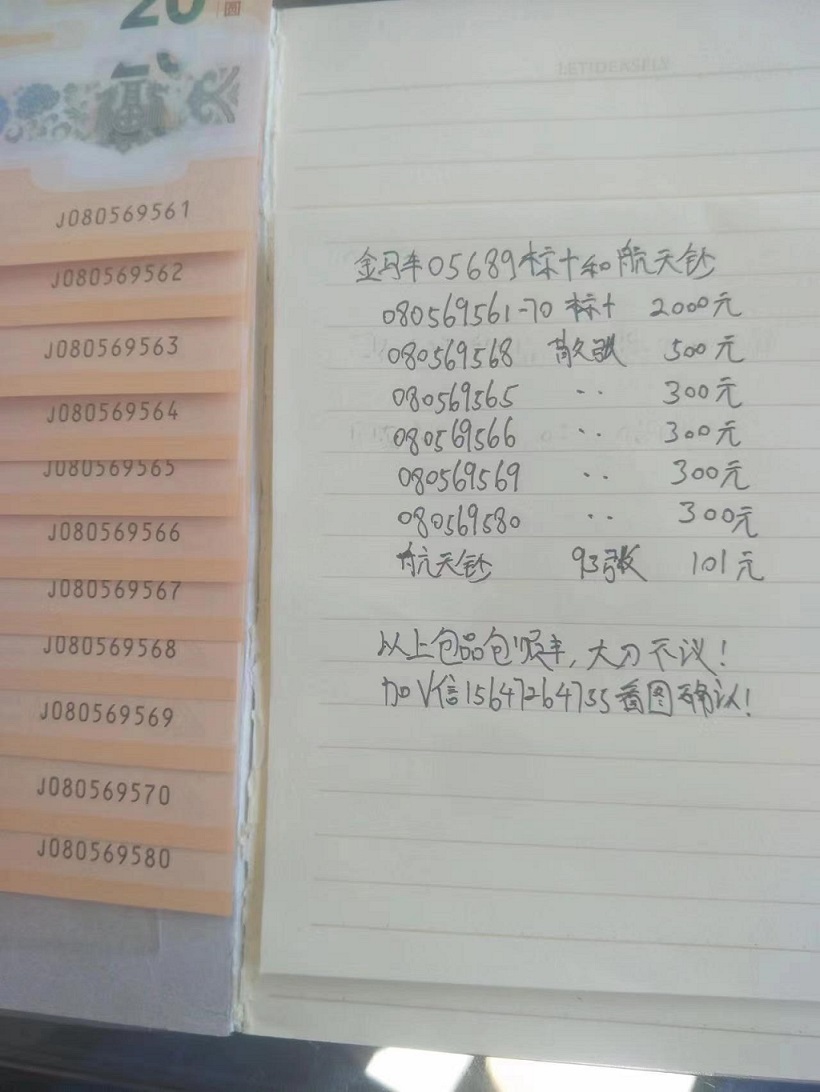 20 圆
J080569561
J080569562
J080569563
J080569564
J080569565
J080569566
J080569567
J080569568
J080569569
J080569570
J080569580
金马车05689标十和航天钞
080569561-70 标十 2000元
080569568 散张 500元
080569565 ·· 300元
080569566 ·· 300元
080569569 ·· 300元
080569580 ·· 300元
航天钞 93张 101元
以上包品包顺丰,大刀不议!
加V信15647264735看图确认!